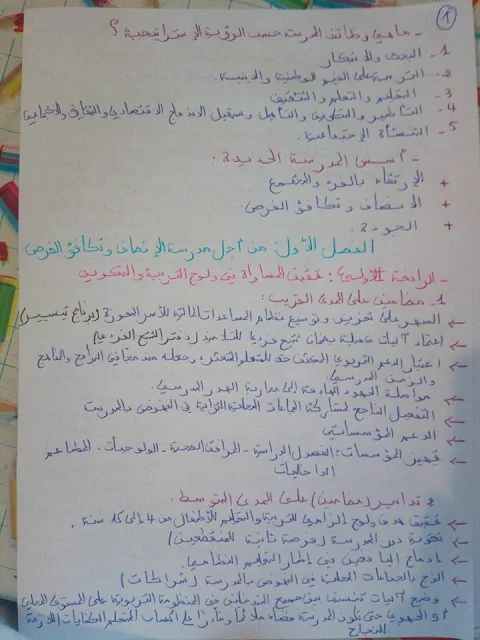 1
- ماهي وظائف المدرسة حسب الرؤية الإستراتيجية ؟
1- البحث والابتكار
2- التربية على القيم الوطنية والدينية.
3- التعليم والتعلم والتثقيف
4- التأطير والتكوين والتأهيل وتسهيل الاندماج الاقتصادي والثقافي والاجتماعي
5- التنشئة الاجتماعية.
- أسس المدرسة الجديدة.
+ الارتقاء بالفرد والمجتمع
+ الإنصاف وتكافؤ الفرص.
+ الجودة.
الفصل الأول: من أجل مدرسة الإنصاف وتكافؤ الفرص
- الرافعة الأولى: تحقيق المساواة في ولوج التربية والتكوين
1- مضامين على المدى القريب:
← السهر على تعزيز وتوسيع نظام المساعدات المالية للأسر المعوزة (برنامج تيسير)
← اعتماد آليات عملية بضمان تتبع فردي للتلاميذ (دفتر التتبع الفردي)
← اعتبار الدعم التربوي المكثف حق للمتعلم المتعثر، وجعله مندمجا في البرامج والمناهج
والزمن المدرسي.
← مواصلة الجهود الهادفة إلى محاربة الهدر المدرسي.
← التفعيل الناجع لمشاركة الجماعات المحلية الترابية في النهوض بالمدرسة
← الدعم المؤسساتي
← تجهيز المؤسسات: الفصول الدراسية - المرافق الصحية - الولوجيات - المطاعم
الداخليات
2 تدابير (مضامين) على المدى المتوسط.
← تحقيق هدف ولوج إلزامي للتربية والتعليم للأطفال من 4 إلى 15 سنة.
← تقوية دور المدرسة (فرصة ثانية للمنقطعين)
← إدماج اليافعين في إطار التعليم النظامي
← الزج بالجماعات المحلية في النهوض بالمدرسة (شراكات)
← وضع آليات تنسيق بين جميع المتدخلين في المنظومة التربوية على المستوى المحلي
أو الجهوي حتى تكون المدرسة فضاء ملائما وقادرا على إكساب المتعلم الكفايات اللازمة
للنجاح